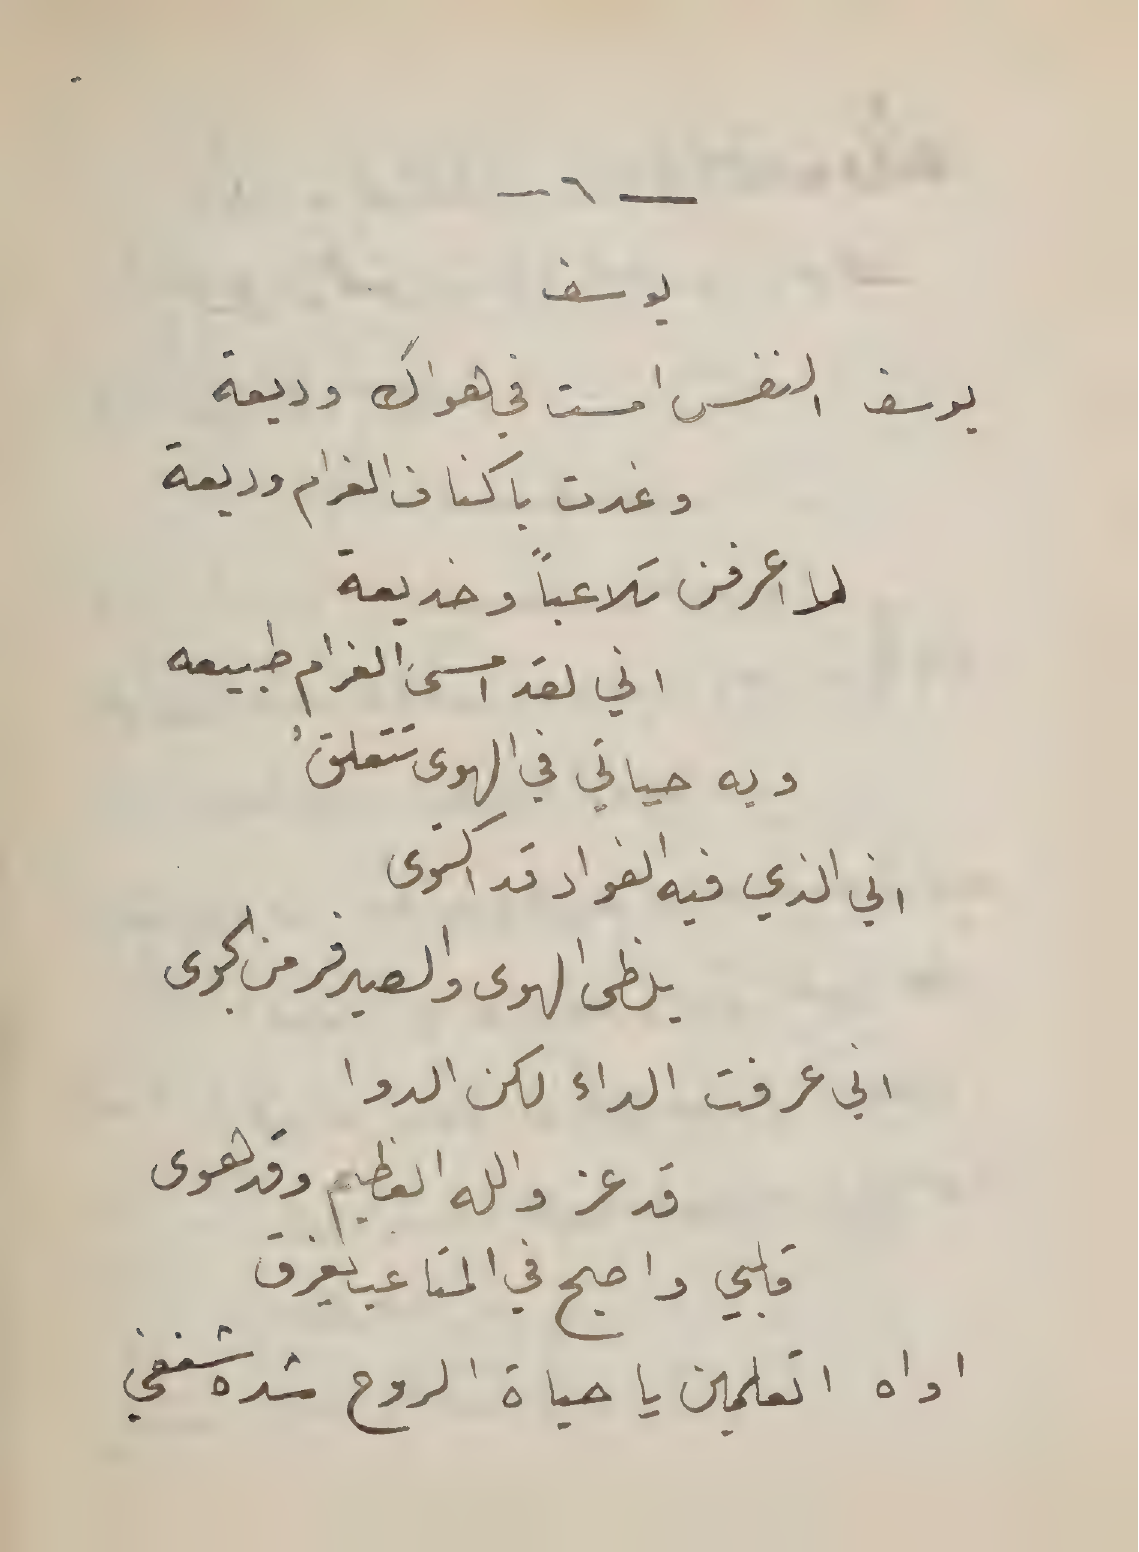 — ٦ —
يوسف
يوسف النفس امست في هواك وديعة
وغدت باكناف الغرام وديعة
لما عرفن تلاعباً وخديعة
اني لقد امسى الغرام طبيعه
وبه حياتي في الهوى تتعلق
اني الذي فيه الفواد قد اكتوى
بلظى الهوى والصبر فر من الجوى
اني عرفت الداء لكن الدوا
قد عز والله العظيم وقد هوى
قلبي واصبح في المتاعب يغرق
اواه اتعلمين يا حياة الروح شده شغفي